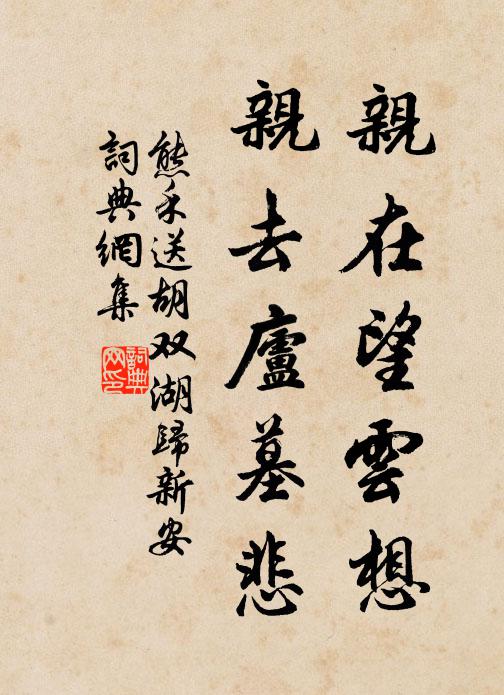 親在望雲想
親去廬墓悲
熊禾送胡双湖歸新安
詞典網集
詞典網印